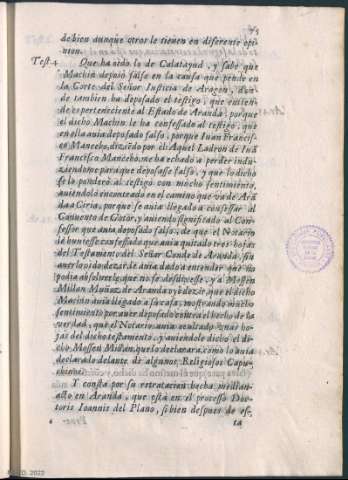 de bien aunque otros le tienen en diferente opi-
nion.
Test. 4 Que ha oido lo de Calatayud, y sabe que
Machin depuso falso en la causa que pende en
la Corte del Señor Iusticia de Aragon, don-
de tambien ha deposado el testigo, que entien-
de es perteneciente al Estado de Aranda, porque
el dicho Machin le ha confessado al testigo, que
en ella auia deposado falso, porque Iuan Francis-
co Mancebo, diziendo por el: Aquel Ladron de Iuã
Francisco Mancebo, me ha echado a perder indu-
ziendome para que depossasse falso, y que lo dicho
se lo ponderò al testigo con mucho sentimiento,
auiendolo encontrado en el camino que va de Arã-
da a Ciria, porque se auia llegado a confessar el
Conuento de Gotor, y auiendo significado al Con-
fessor que auia deposado falso, de que el Notario
de huuiesse confessado que auia quitado tres hojas
del Testamento del Señor Conde de Aranda, sin
auerlo oido dezir, le auia dado a entender que no
podia absoluerle que no se desdixesse, y a Mossen
Millan Muñoz de Aranda oyò dezir que el dicho
Macino auia llegado a su casa, mostrando mucho
sentimiento por auer deposado contra el hecho de la
verdad, que el Notario auia ocultado vnas ho-
jas del dicho testamento, y auiendole dicho el di-
cho Mossen Millan, que lo declarara, como lo auia
declarado delante de algunos Religiosos Capu-
chinos.
Y consta por su retractacion hecha median-
acto en Aranda, que està en el processo Doc-
toris Ioannis del Plano, si bien despues de es-
ta